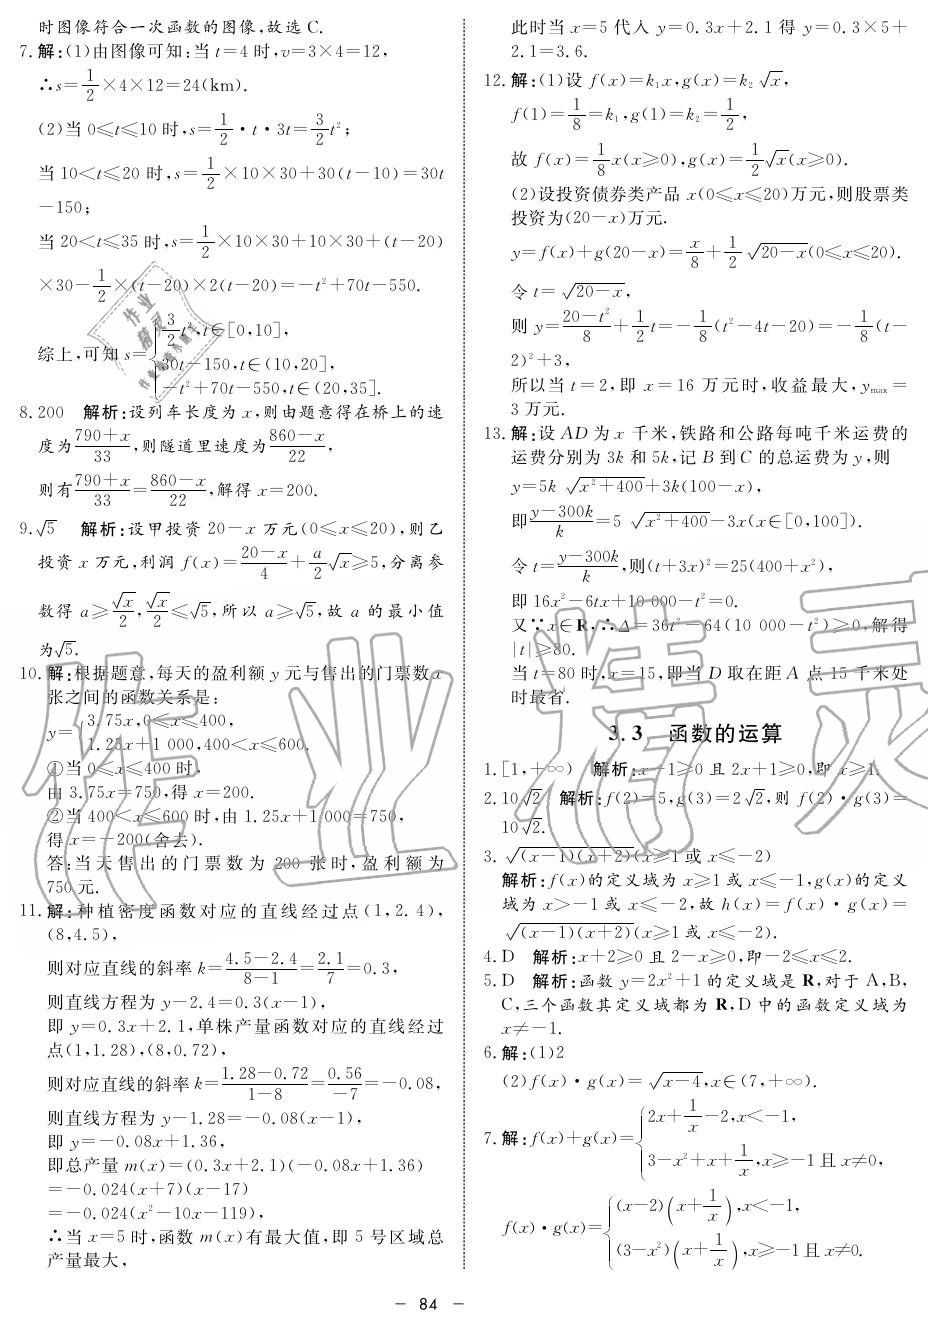 时图像符合一次函数的图像,故选C.
7.解:(1)由图像可知:当t=4时,v=3×4=12,
∴s=1/2×4×12=24(km).
(2)当0≤t≤10时,s=1/2·t·3t=3/2t²;
当10<t≤20时,s=1/2×10×30+30(t-10)=30t
-150;
当20<t≤35时,s=1/2×10×30+10×30+(t-20)
×30-1/2×(t-20)×2(t-20)=-t²+70t-550.
综上,可知s={3/2t²,t∈[0,10],
30t-150,t∈(10,20],
-t²+70t-550,t∈(20,35].
8.200 解析:设列车长度为x,则由题意得在桥上的速
度为(790+x)/33,则隧道里速度为(860-x)/22,
则有(790+x)/33=(860-x)/22,解得x=200.
9.√5 解析:设甲投资20-x万元(0≤x≤20),则乙
投资x万元,利润f(x)=(20-x)/4+a/2√x≥5,分离参
数得a≥√x/2,√x/2≤√5,所以a≥√5,故a的最小值
为√5.
10.解:根据题意,每天的盈利额y元与售出的门票数x
张之间的函数关系是:
y={3.75x,0≤x≤400,
1.25x+1 000,400<x≤600.
①当0≤x≤400时,
由3.75x=750,得x=200.
②当400<x≤600时,由1.25x+1 000=750,
得x=-200(舍去).
答:当天售出的门票数为200张时,盈利额为
750元.
11.解:种植密度函数对应的直线经过点(1,2.4),
(8,4.5),
则对应直线的斜率k=(4.5-2.4)/(8-1)=2.1/7=0.3,
则直线方程为y-2.4=0.3(x-1),
即y=0.3x+2.1,单株产量函数对应的直线经过
点(1,1.28),(8,0.72),
则对应直线的斜率k=(1.28-0.72)/(1-8)=0.56/-7=-0.08,
则直线方程为y-1.28=-0.08(x-1),
即y=-0.08x+1.36,
即总产量m(x)=(0.3x+2.1)(-0.08x+1.36)
=-0.024(x+7)(x-17)
=-0.024(x²-10x-119),
∴当x=5时,函数m(x)有最大值,即5号区域总
产量最大,
此时当x=5代入y=0.3x+2.1得y=0.3×5+
2.1=3.6.
12.解:(1)设f(x)=k₁x,g(x)=k₂√x,
f(1)=1/8=k₁,g(1)=k₂=1/2,
故f(x)=1/8x(x≥0),g(x)=1/2√x(x≥0).
(2)设投资债券类产品x(0≤x≤20)万元,则股票类
投资为(20-x)万元.
y=f(x)+g(20-x)=x/8+1/2√(20-x)(0≤x≤20).
令t=√(20-x),
则y=(20-t²)/8+1/2t=-1/8(t²-4t-20)=-1/8(t-
2)²+3,
所以当t=2,即x=16万元时,收益最大,ymax=
3万元.
13.解:设AD为x千米,铁路和公路每吨千米运费的
运费分别为3k和5k,记B到C的总运费为y,则
y=5k√(x²+400)+3k(100-x),
即(y-300k)/k=5√(x²+400)-3x(x∈[0,100]).
令t=(y-300k)/k,则(t+3x)²=25(400+x²),
即16x²-6tx+10 000-t²=0.
又∵x∈R,∴Δ=36t²-64(10 000-t²)≥0,解得
|t|≥80.
当t=80时,x=15,即当D取在距A点15千米处
时最省.
3.3 函数的运算
1.[1,+∞) 解析:x-1≥0且2x+1≥0,即x≥1.
2.10√2 解析:f(2)=5,g(3)=2√2,则f(2)·g(3)=
10√2.
3.√((x-1)(x+2))(x≥1或x≤-2)
解析:f(x)的定义域为x≥1或x≤-1,g(x)的定义
域为x>-1或x≤-2,故h(x)=f(x)·g(x)=
√((x-1)(x+2))(x≥1或x≤-2).
4.D 解析:x+2≥0且2-x≥0,即-2≤x≤2.
5.D 解析:函数y=2x²+1的定义域是R,对于A,B,
C,三个函数其定义域都为R,D中的函数定义域为
x≠-1.
6.解:(1)2
(2)f(x)·g(x)=√(x-4),x∈(7,+∞).
7.解:f(x)+g(x)={2x+1/x-2,x<-1,
3-x²+x+1/x,x≥-1且x≠0,
f(x)·g(x)={(x-2)(x+1/x),x<-1,
(3-x²)(x+1/x),x≥-1且x≠0.
- 84 -
作业精灵